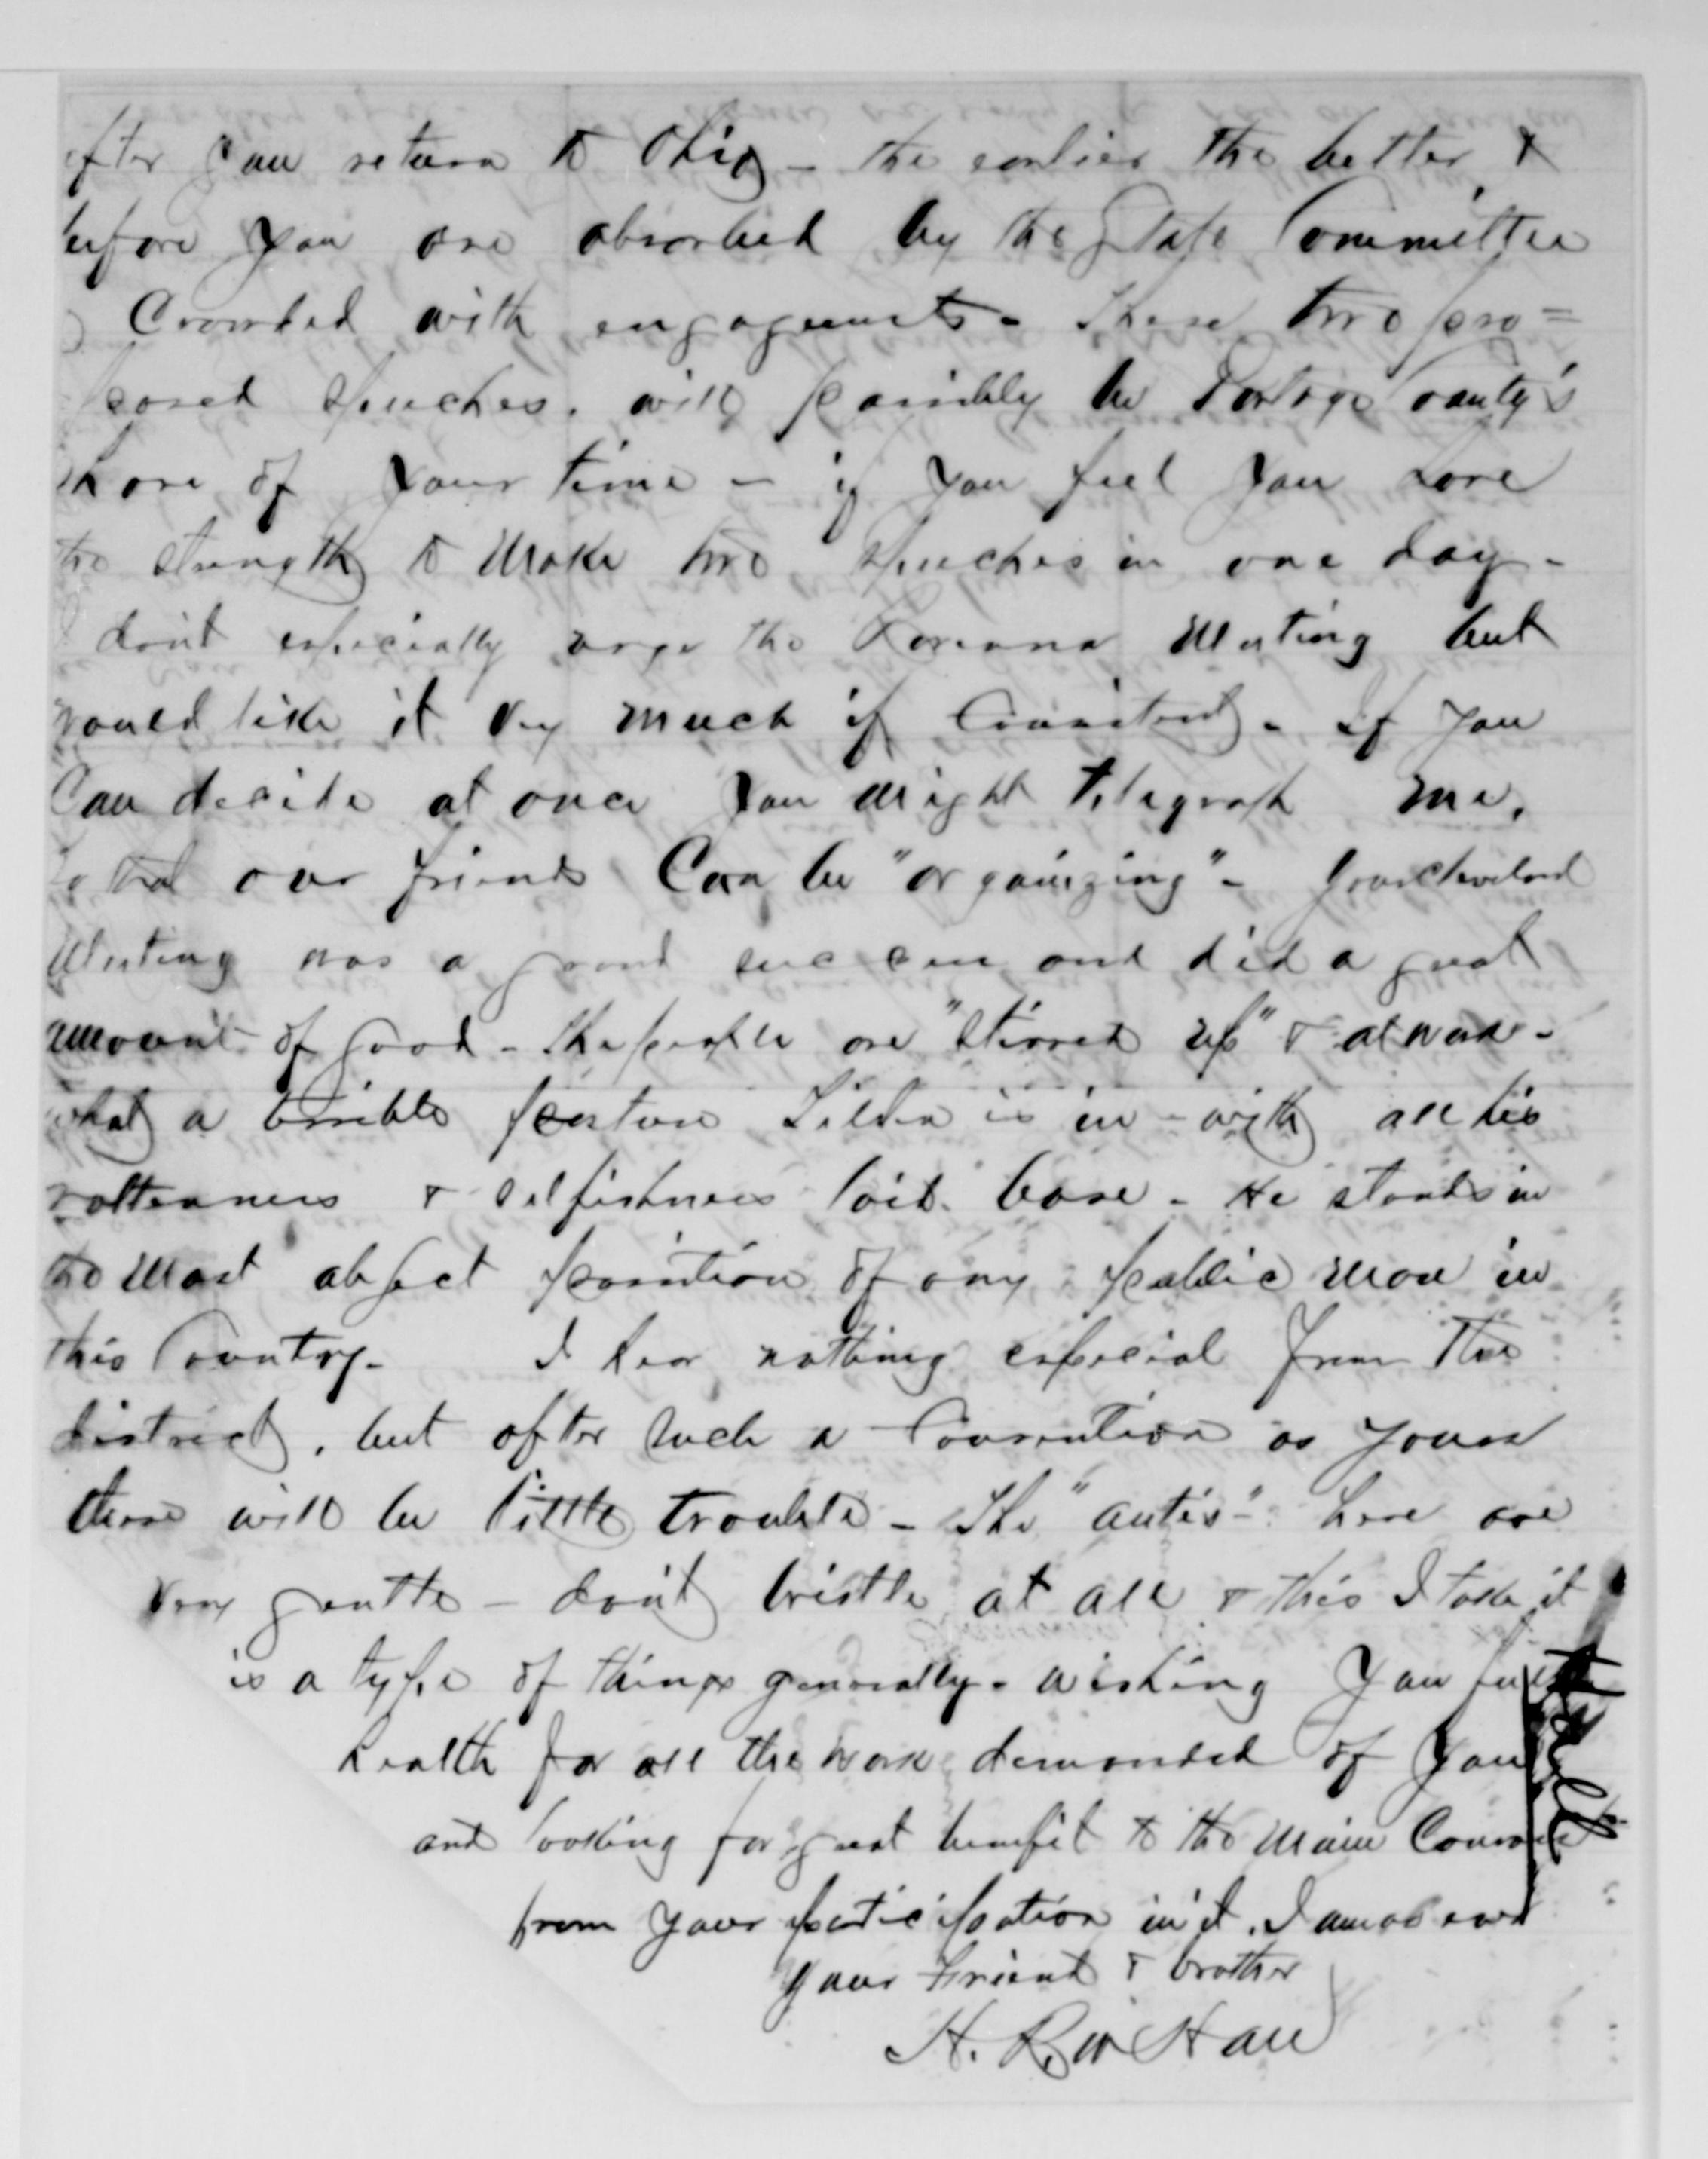 after you return to Ohio - the earlier the better &
before you are absorbed by the State Committee
& Crowded with engagements - These two pro=
posed speeches, will possibly be Portage County's
share of your time - if you feel you have
the strength to make two speeches in one day -
I don't especially urge the Ravenna Meeting but
would like it very much if Consistent - If you
Can decide at once you might telegraph me,
so that our friends Can be "organizing" - Your Cleveland
Meeting was a grand success and did a great
amount of good - the people are "stirred up" & at work -
what a terrible posture Tilden is in - with all his
rottenness & selfishness laid bare - He stands in
the most abject position of any public man in
this Country - I hear nothing especial from the
district, but after such a Convention as yours
there will be little trouble - The "antis" here are
very gentle - don't bristle at all & this I take it
is a type of things generally - wishing you full
health for all the work demanded of you
and looking for great benefit to the Maine Canvass
from your participation in it, I am as ever
Your Friend & brother
H. R. W. Hall
Hall